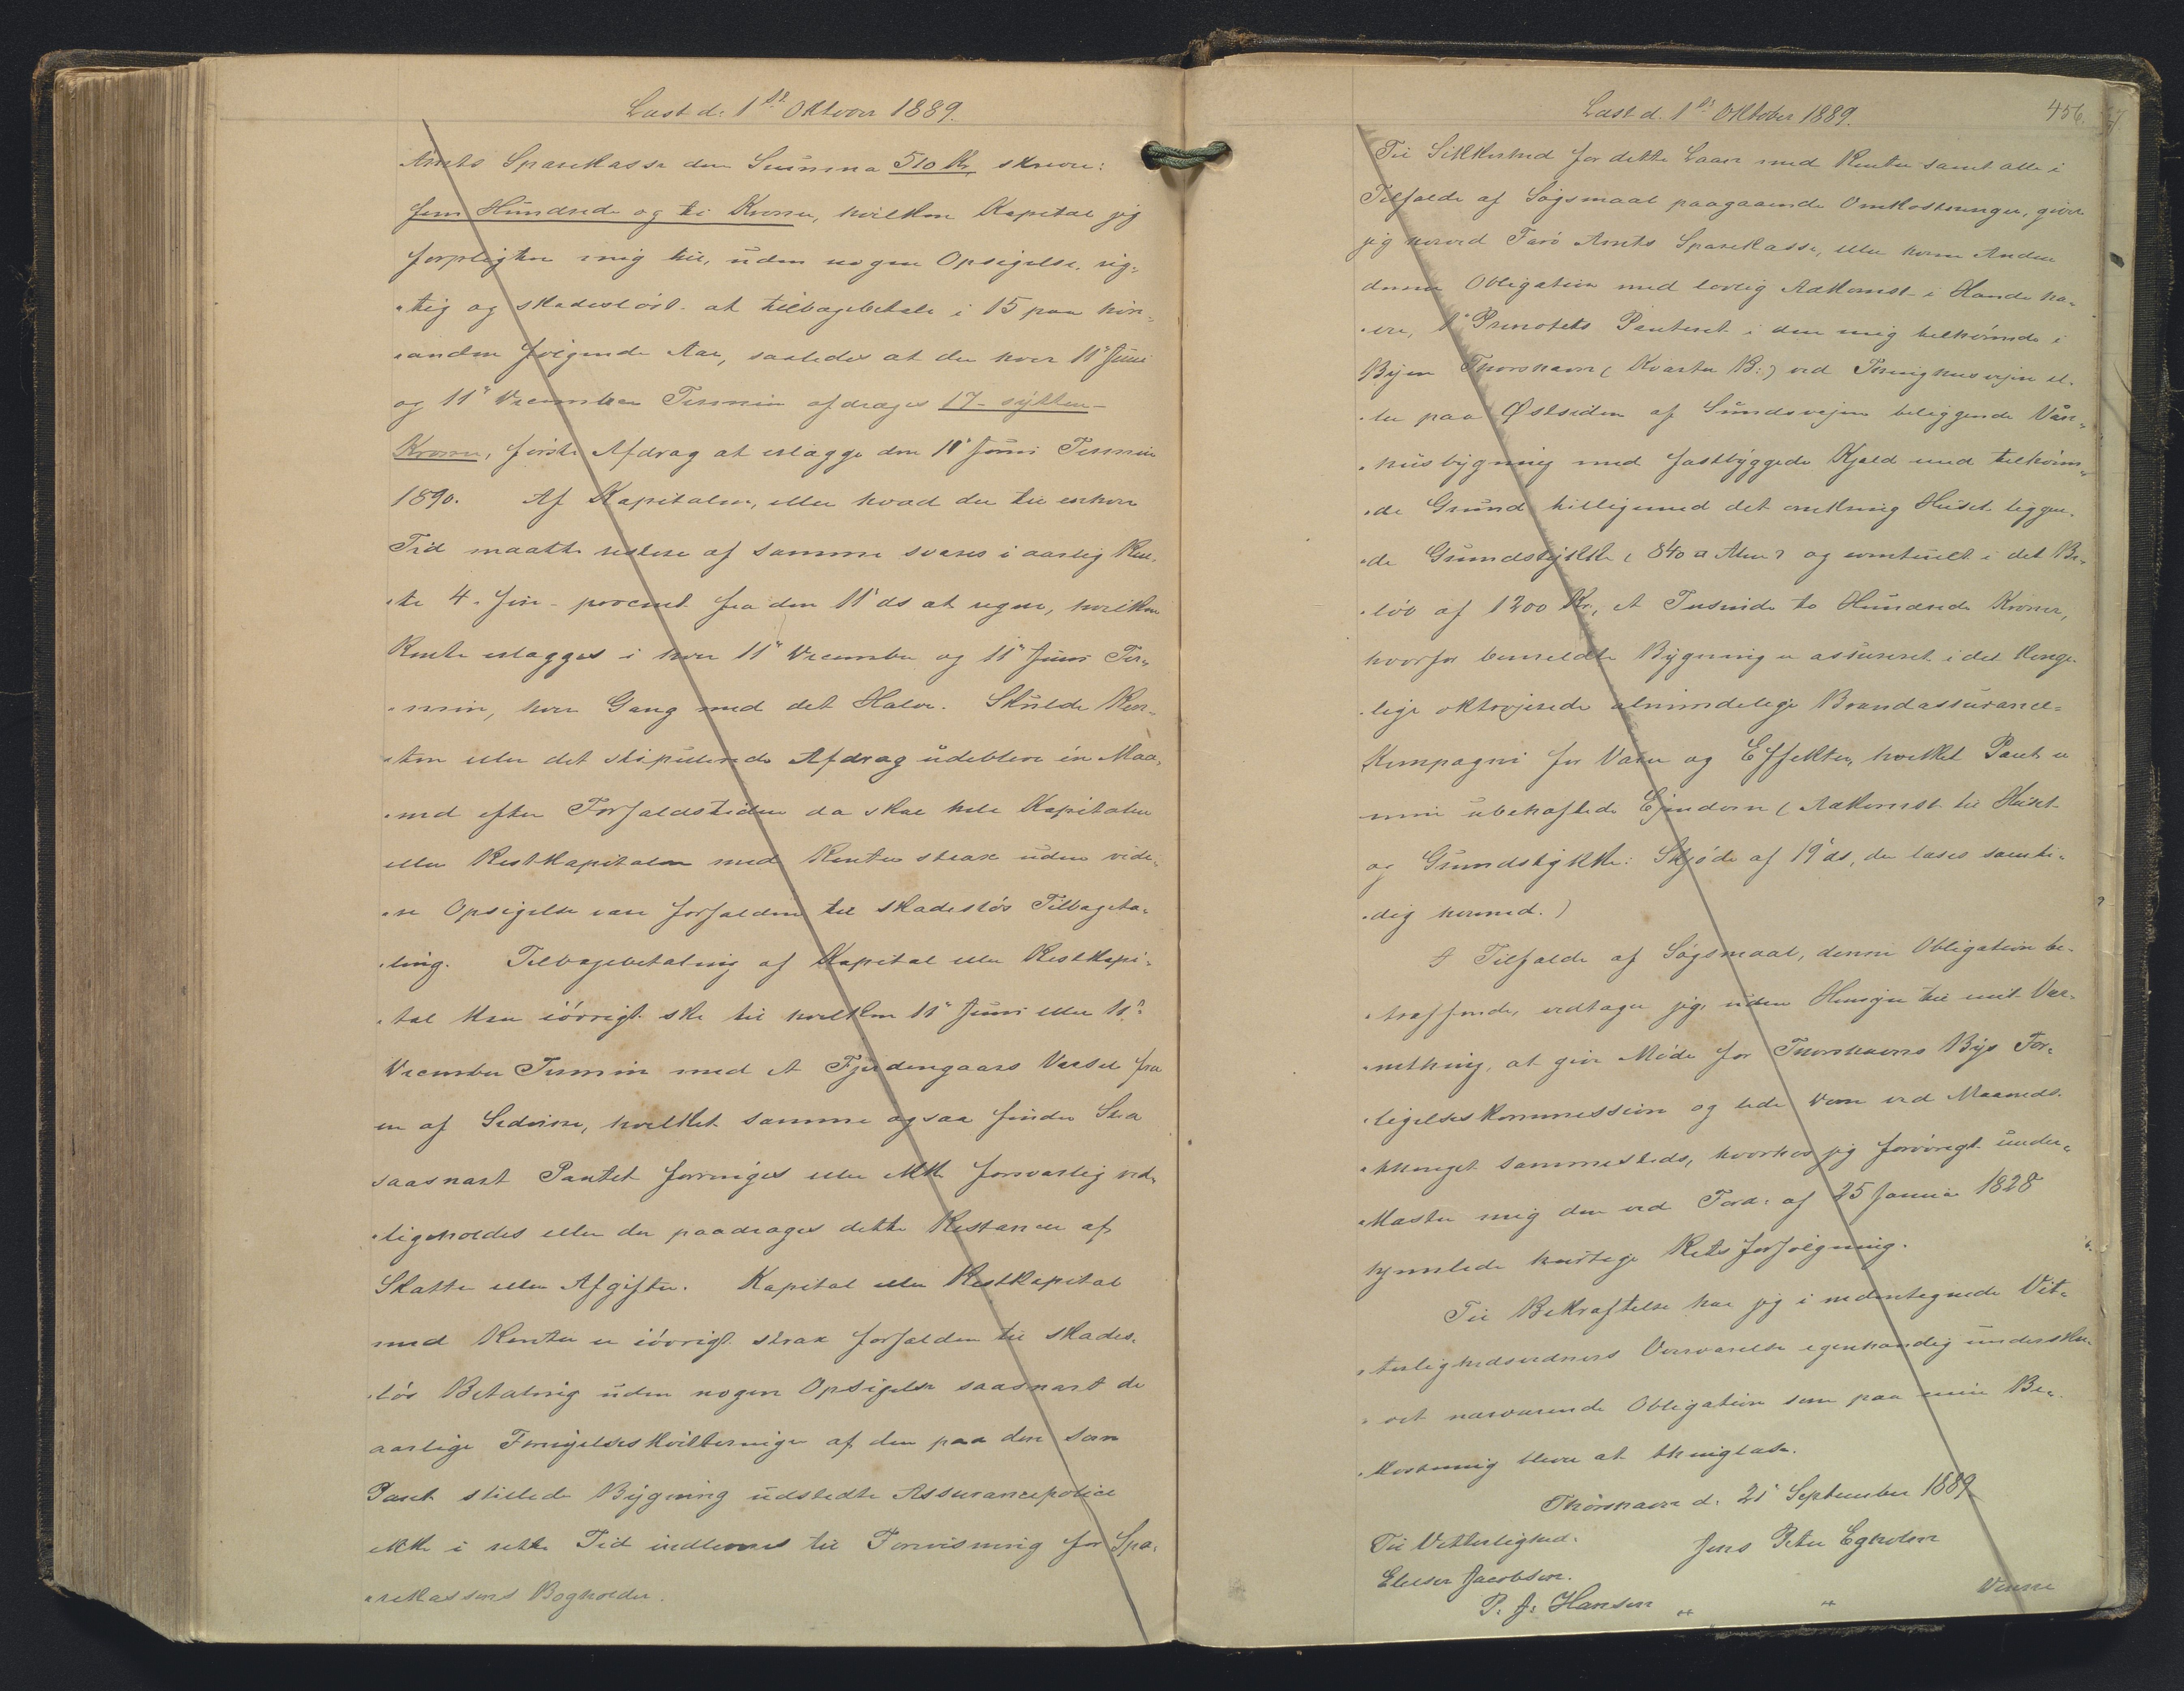 Læst d. 1ste Oktober 1889.
Amts Sparekasse den Summa 510 Kr, skriver:
fem Hundrede og ti Kroner, hvilken Kapital jeg
forpligter mig til, uden nogen Opsigelse, rig-
-tig og skadesløst at tilbagebetale i 15 paa hin-
-anden følgende Aar, saaledes at der hver 11" Juni
og 11" December Termin afdrages 17 - sytten -
Kroner, første Afdrag at erlægge den 11" Juni Termin
1890. Af Kapitalen, eller hvad der til enhver
Tid maatte restere af samme svares i aarlig Ren-
-te 4 - fire - procent fra den 11' ds at regne, hvilken
Rente erlægges i hver 11" December og 11" Juni Ter-
-min, hver Gang med det Halve. Skulde Ren-
-ten eller det stipulerede Afdrag udeblive én Maa-
-ned efter Forfaldstiden da skal hele Kapitalen
eller Restkapitalen med Renter strax uden vide-
-re Opsigelse være forfalden til skadesløs Tilbageta-
-ling. Tilbagebetaling af Kapital eller Restkapi-
-tal kan iøvrigt ske til hvilken 11" Juni eller 11"
December Termin med et Fjerdingaars Varsel fra
en af Siderne, hvilket samme ogsaa finder Sted
saasnart Pantet forringes eller ikke forsvarlig ved-
-ligeholdes eller der paadrages dette Restancer af
Skatter eller Afgifter. Kapital eller Restkapital
med Renter er iøvrigt strax forfalden til skades-
-løs Betaling uden nogen Opsigelse saasnart de
aarlige Fornyelseskvitteringer af den paa den som
Pant stillede Bygning udstedte Assurancepolice
ikke i rette Tid indleveres til Forevisning for Spa-
-rekassens Bogholder.
Læst d. 1ste Oktober 1889.
456.
Til Sikkerhed for dette Laan med Renter samt alle i
Tilfælde af Søgsmaal paagaaende Omkostninger, giver
jeg herved Færø Amts Sparekasse, eller hvem Anden
denne Obligation med lovlig Adkomst i Hænde ha-
-ver, 1' Prioritets Panteret i den mig tilhørende i
Byen Thorshavn (Kvarter B:) ved Thinghusvejen el-
-ler paa Østsiden af Sundsvejen beliggende Vaa-
-huusbygning med fastbyggede Kjeld med tilhøren-
-de Grund tilligemed det omkring Huset liggen-
-de Grundstykke (840 □ Alen) og eventuelt i det Be-
-løb af 1200 Kr, et Tusinde to Hundrede Kroner,
hvorfor bemeldte Bygning er assureret i det konge-
-lige oktrojerede almindelige Brandassurance-
Kompagni for Varer og Effekter, hvilket Pant er
min ubehæftede Ejendom (Adkomst til Huset
og Grundstykke: Skjøde af 19' ds, der læses samti-
-dig hermed.)
I Tilfælde af Søgsmaal, denne Obligation be-
-træffende, vedtager jeg, uden Hensyn til mit Væ-
-rnething, at give Møde for Thorshavns Bys For-
-ligelseskommission og lide Dom ved Maaneds-
-thinget sammesteds, hvorhos jeg forøvrigt under-
-kaster mig den ved Frd. af 25 Januar 1828
hjemlede hurtige Retsforfølgning.
Til Bekræftelse har jeg i nedentegnede Vit-
-terlighedsvidners Overværelse egenhændig underskre-
-vet nærværende Obligation som paa min Be-
-kostning bliver at thinglæse.
Thorshavn d. 21' September 1889
Til Vitterlighed. Jens Peter Egholm
Elieser Jacobsen.
P. J. Hansen " "
Denne